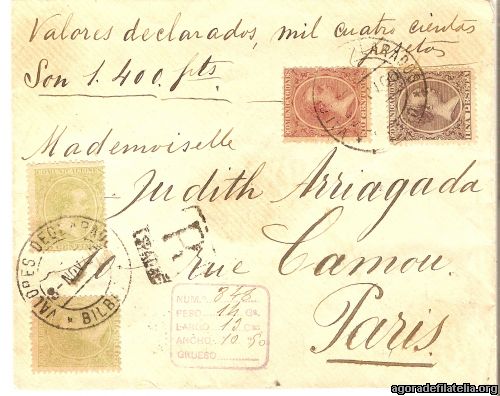 Valores declarados, mil cuatro cientas
psetas
Son 1.400 pts.
COMUNICACIONES
COMUNICACIONES
UNA PESETA
Mademoiselle
Judith Arriagada
10 rue Camou.
Paris
VALORES DECLARADOS
NOV
BILBAO
R
NUM. 346
PESO 14 Gs.
LARGO 13 Cm.
ANCHO 10 50
GRUESO
agoradefilatelia.org